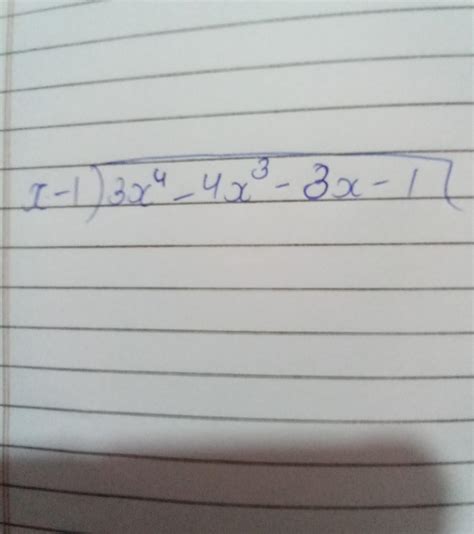 x-1)3x⁴-4x³-3x-1(